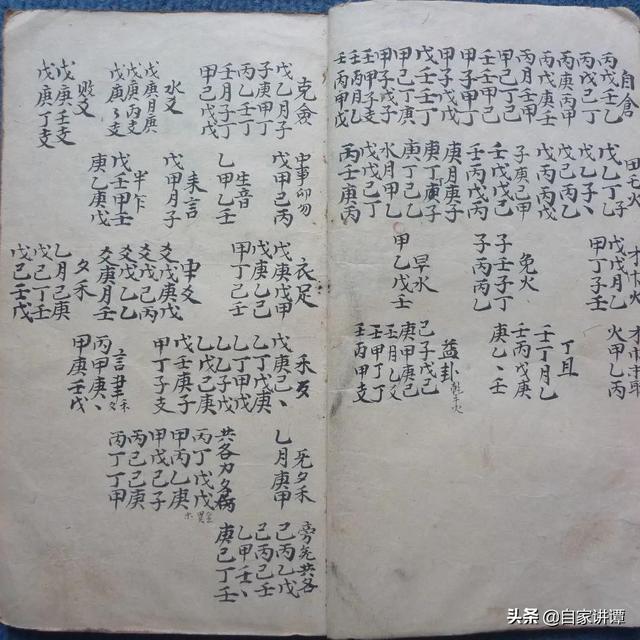 自倉
丙戊壬乙
丙戊己丁
丙庚丙甲
丙戊庚壬
丙月壬甲
甲壬丁己
壬壬甲己
戊乙丁子
戊乙子丶
戊己丙乙
子庚己甲
壬戊戊己
壬丙戊丙
庚月庚子
庚丁庚子
庚寅丁丁
水月甲乙
戊戊己丁
丙壬庚丙
戊戊月乙
甲丁子壬
免火
子壬子丁
子丙丙乙
早水
甲乙戊壬
火甲乙丙
丁且
壬丁月乙
壬丙戊庚
庚乙丶壬
益卦
己子戊己
庚甲庚己
壬月乙爻
壬甲丁丁
壬丙甲支
克倉
戊乙月子
子庚甲丁
丙乙壬丁
壬月子丁
甲己戊戊
水爻
戊庚月庚
戊庚丙支
戊庚丶支
败爻
戊庚壬支
戊庚丁支
中事卯勿
戊甲己丙
生音
乙甲乙壬
耒言
戊甲月子
半卞
戊壬甲壬
庚乙庚戊
衣足
戊庚戊甲
戊庚乙己
甲丁己壬
申爻
爻戊庚戊
爻戊己丙
爻戊乙乙
爻庚月壬
夕禾
乙月己庚
戊己丁壬
戊己壬戊
禾歹
戊庚己丶
乙丁戊庚
乙丁乙丶
乙乙子戊
乙戊己戊
甲壬庚子
甲丁子支
丙甲庚丶
甲庚壬戊
旡夕禾
乙月庚甲
共各力夕病
丙丁戊戊
甲丙乙庚
甲戊己子
丙己己庚
丙丁丁甲
旁旡共各
己丙乙戊
己丙己壬
乙甲壬丶
庚己丁壬
头条 @自家讲谭